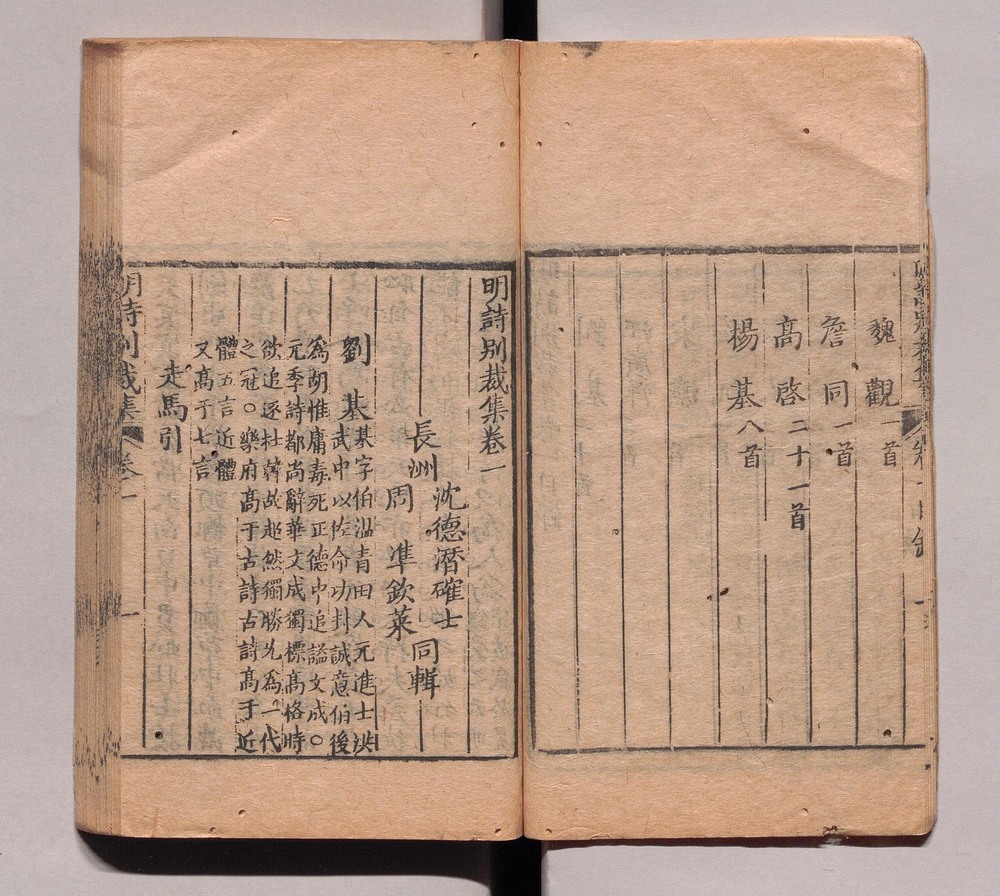 魏觀一首
詹同一首
高啓二十一首
楊基八首
明詩別裁集卷一
沈德潛確士
長洲
同輯
周準欽萊
劉基
基字伯溫青田人元進士洪
武中以佐命功封誠意伯後
爲胡惟庸毒死正德中追諡文成○
元季詩都尚辭華文成獨標高格時
欲追逐杜韓故超然獨勝允爲一代
之冠○樂府高于古詩古詩高于近
體五言近體
又高于七言
走馬引
明詩別裁集
卷一
一